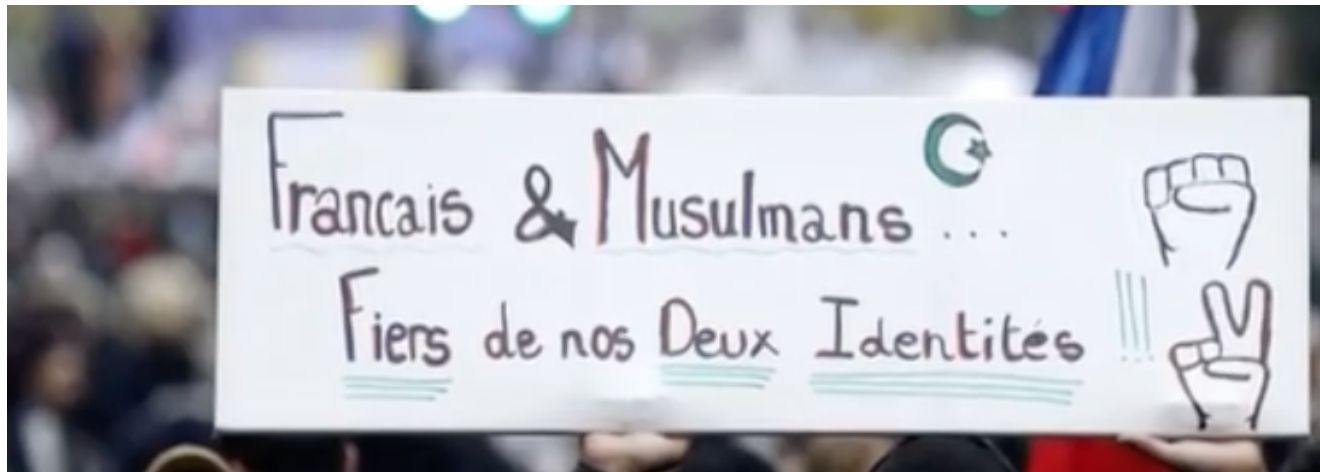 Francais & Musulmans ...
Fiers de nos Deux Identités !!!